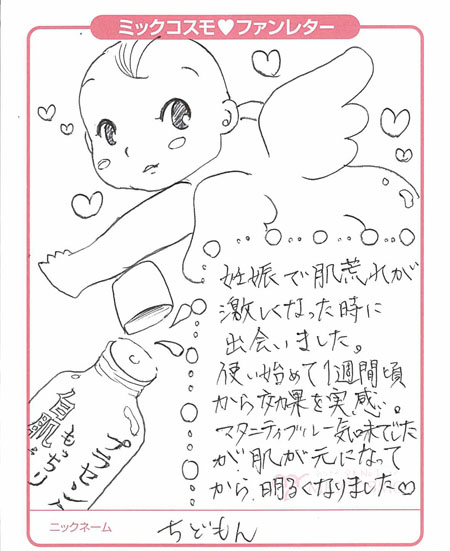 ミックコスモ♥ファンレター
妊娠で肌荒れが
激しくなった時に
出会いました。
使い始めて1週間頃
から効果を実感。
マタニティブルー気味でした
が肌が元になって
から明るくなりました♡
プラセント
もっちり
ニックネーム
ちどもん